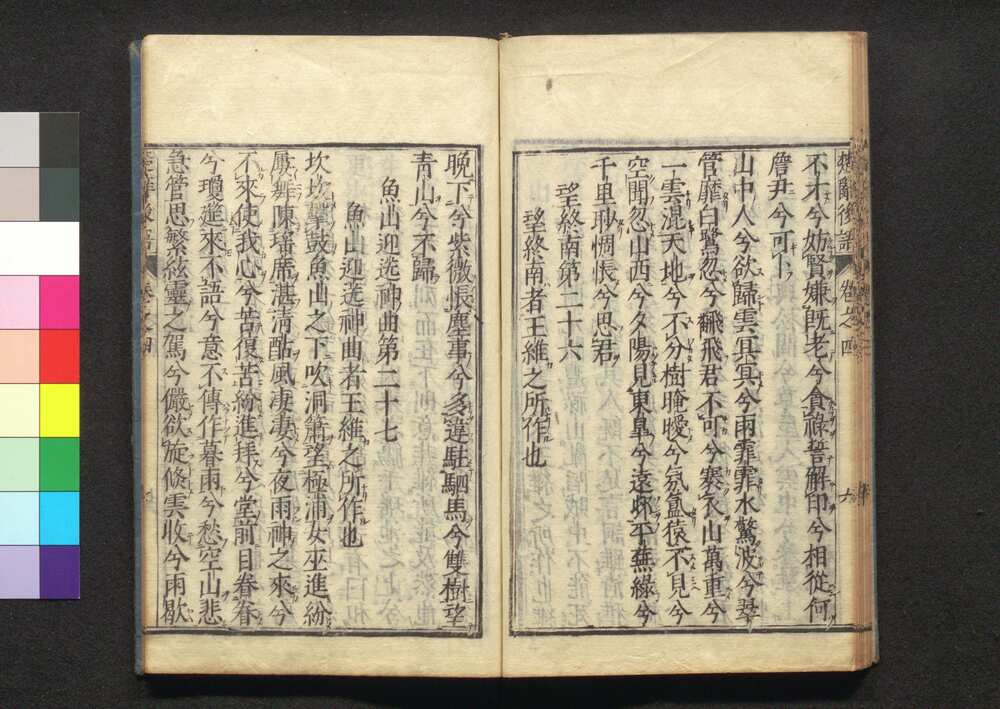 楚辭後語 卷之四 六
不才兮妨賢嫌既老兮貪祿誓解印兮相從何
詹尹兮可卜
山中人兮欲歸雲冥冥兮雨霏霏水驚波兮翠
管靡白鷺忽兮翻飛君不可兮褰衣山萬重兮
一雲混天地兮不分樹晻曖兮氛氳猿不見兮
空聞忽山西兮夕陽見東皐兮遠邨平蕪綠兮
千里眇惆悵兮思君
望終南第二十六
望終南者王維之所作也
晩下兮紫微悵塵事兮多違駐駟馬兮雙樹望
青山兮不歸
魚山迎送神曲第二十七
魚山迎送神曲者王維之所作也
坎坎擊鼓魚山之下吹洞簫望極浦女巫進紛
屢舞陳瑤席湛清酤風淒淒兮夜雨神之來兮
不來使我心兮苦復苦紛進拜兮堂前目眷眷
兮瓊筵來不語兮意不傳作暮雨兮愁空山悲
急管思繁絃靈之駕兮儼欲旋倐雲收兮雨歇